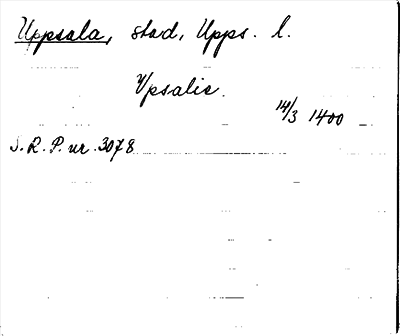 Uppsala, stad, Upps. l.
Ypsalie.
14/3 1400
S.R.P. nr. 3078